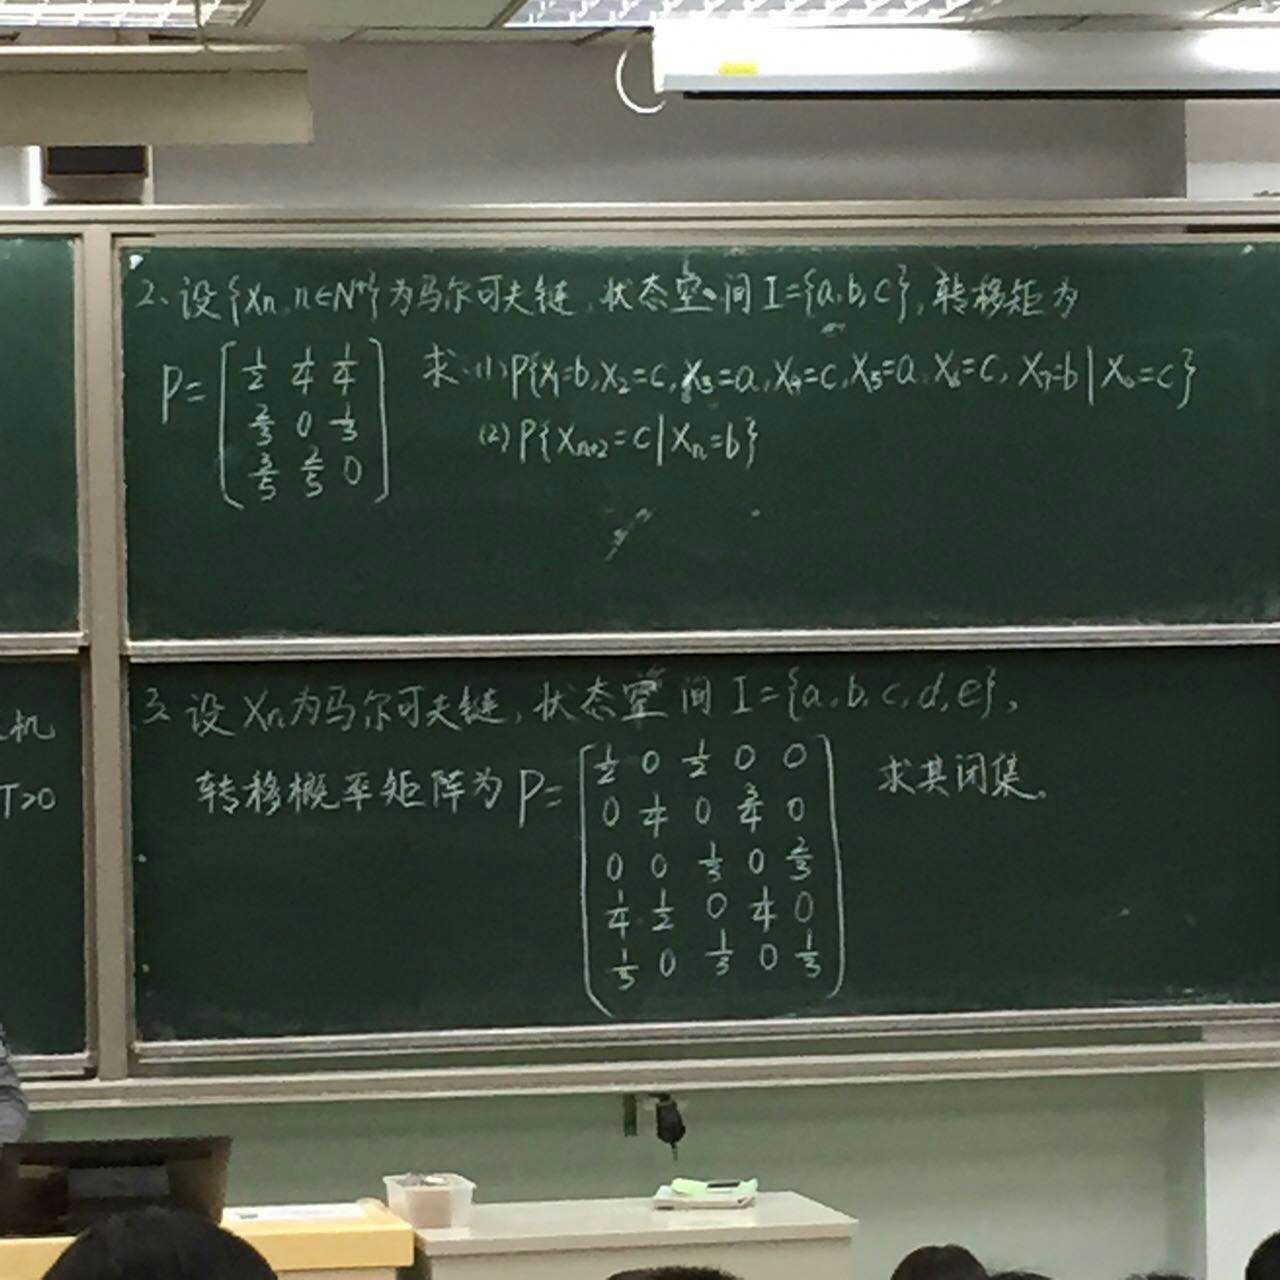 2、设{Xn, n∈N+}为马尔可夫链,状态空间I={a,b,c},转移矩为
P= [1/2 1/4 1/4; 2/3 0 1/3; 3/5 2/5 0] 求(1)P{X1=b,X2=c,X3=a,X4=c,X5=a,X6=c,X7=b|X0=c}
(2)P{Xn+2=c|Xn=b}
3.设Xn为马尔可夫链,状态空间I={a,b,c,d,e},
转移概率矩阵为P= [1/2 0 1/2 0 0; 0 1/4 0 3/4 0; 0 0 1/3 0 2/3; 1/4 1/2 0 1/4 0; 1/3 0 1/3 0 1/3] 求其闭集。
机
T>0